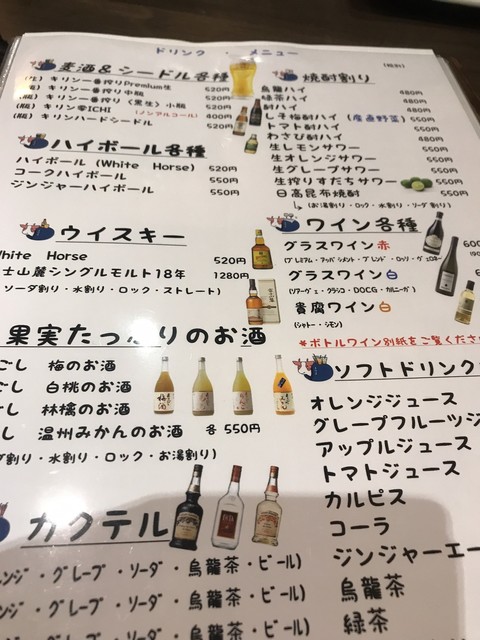 ドリンク ・ メニュー
(税別)
麦酒&シードル各種
キリン一番搾りPremium生 520円
キリン一番搾り中瓶
キリン一番搾り (黒生) 小瓶 520円
キリン零ICHI (ノンアルコール) 400円
キリンハードシードル 520円
ハイボール各種
ハイボール (White Horse) 520円
コークハイボール 550円
ジンジャーハイボール 550円
ウイスキー
White Horse 520円
士山麓シングルモルト18年 1280円
ソーダ割り・水割り・ロック・ストレート)
果実たっぷりのお酒
ごし 梅のお酒
ごし 白桃のお酒
ごし 林檎のお酒
し 温州みかんのお酒 各 550円
割り・水割り・ロック・お湯割り)
カクテル
ンジ・グレープ・ソーダ・烏龍茶・ビール)
ンジ・グレープ・ソーダ・烏龍茶・ビール)
ンジ・グレープ・ソーダ・烏龍茶・ビール)
焼酎割り
烏龍ハイ 480円
緑茶ハイ 480円
酎ハイ 480円
しそ梅酎ハイ (産直野菜) 550円
トマト酎ハイ 550円
わさび酎ハイ 480円
生レモンサワー 550円
生オレンジサワー 550円
生グレープサワー 550円
生搾りすだちサワー 550円
日高昆布焼酎 550円
(お湯割り・ロック・水割り・ソーダ割り)
ワイン各種
グラスワイン赤 600
グラスワイン白
(ソアーヴェ・クラシコ・DOCG・カルニーガ)
貴腐ワイン白
(シャトー・シモン)
*ボトルワイン別紙をご覧くださ
ソフトドリンク
オレンジジュース
グレープフルーツジ
アップルジュース
トマトジュース
カルピス
コーラ
ジンジャーエー
烏龍茶
緑茶